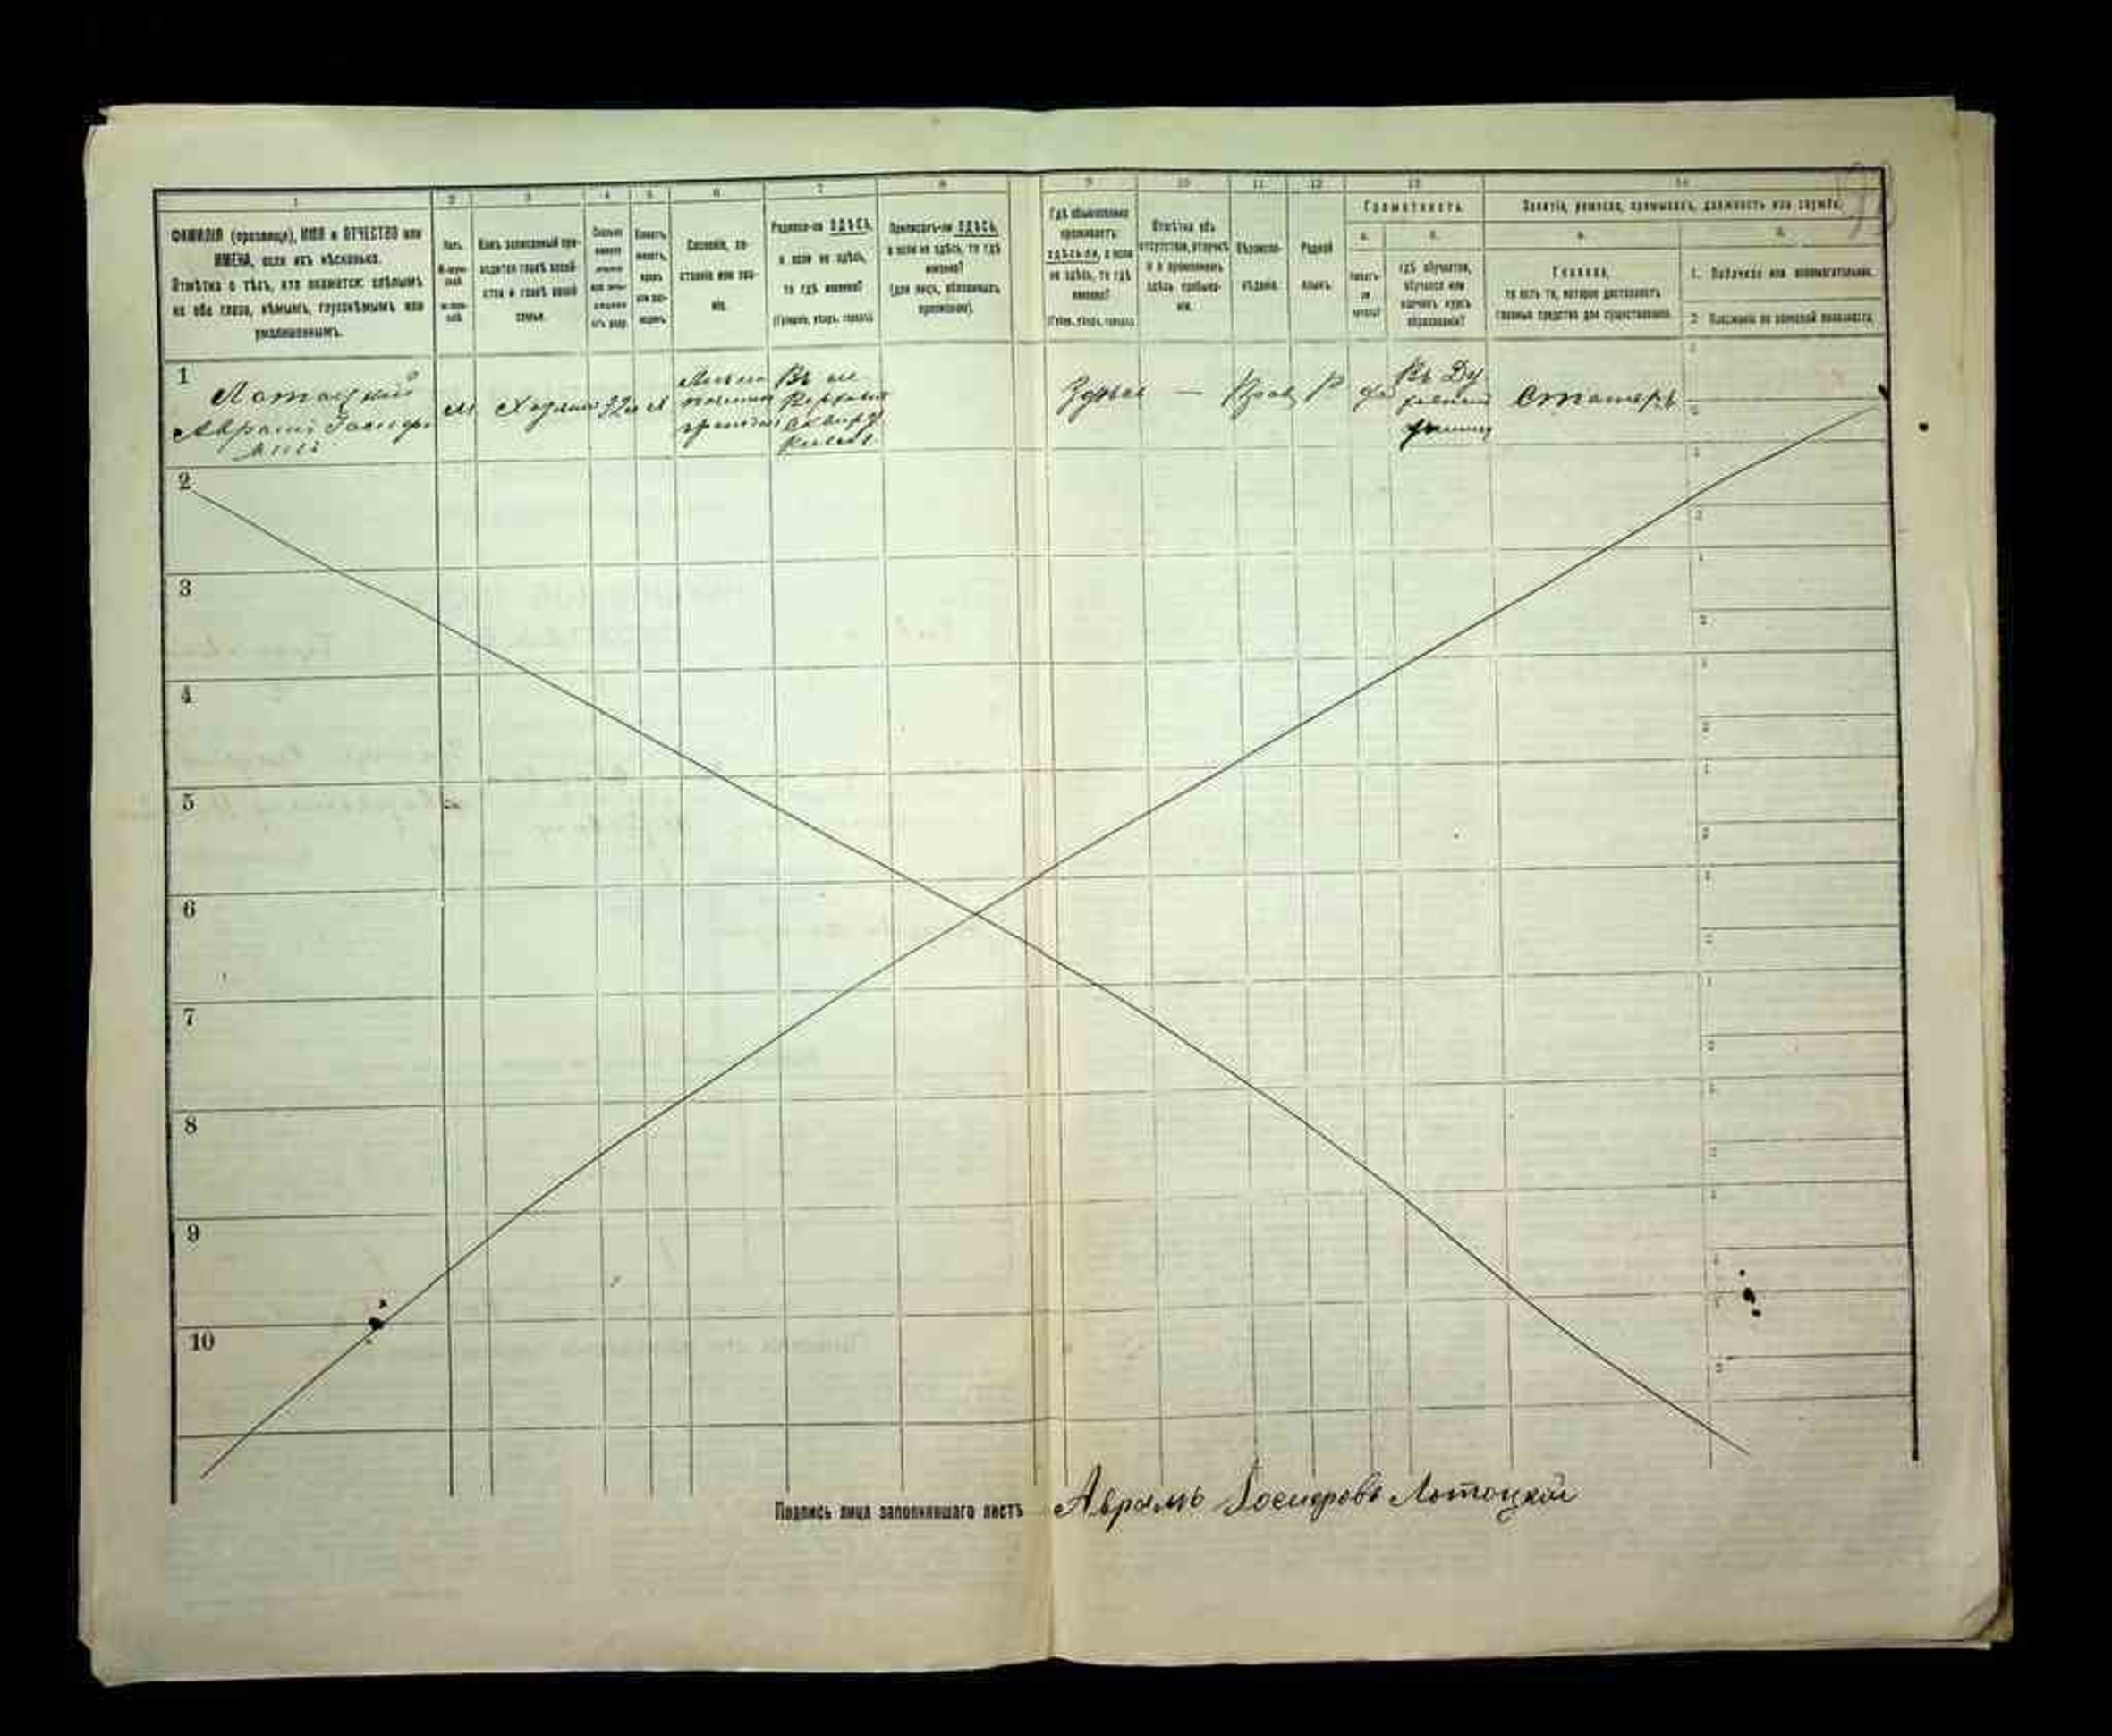 1 2 3 4 5 6 7 8 9 10 11 12 13 14
ФАМИЛІЯ (прозвище), ИМЯ и ОТЧЕСТВО или
ИМЕНА, если ихъ нѣсколько.
Отмѣтка о тѣхъ, кто окажется: слѣпымъ
на оба глаза, нѣмымъ, глухонѣмымъ или
умалишеннымъ.
Полъ.
Какъ записанный при-
ходится главѣ хозяй-
ства и главѣ своей
семьи.
Сословіе, со-
стояніе или зва-
ніе.
Родился-ли ЗДѢСЬ,
а если не здѣсь,
то гдѣ именно?
(Губернія, уѣздъ, городъ).
Приписанъ-ли ЗДѢСЬ,
а если не здѣсь, то гдѣ
именно?
(для лицъ, обязанныхъ
припискою).
Гдѣ обыкновенно
проживаетъ:
здѣсь-ли, а если
не здѣсь, то гдѣ
именно?
(Губер., уѣздъ, городъ).
Отмѣтка объ
отсутствіи, отлучкѣ
и о временномъ
здѣсь пребыва-
ніи.
Вѣроиспо-
вѣданіе.
Родной
языкъ.
Грамотность.
а.
б.
Гдѣ обучается,
обучался или
кончилъ курсъ
образованія?
Занятіе, ремесло, промыселъ, должность или служба.
а.
Главное,
то есть то, которое доставляетъ
главныя средства для существованія.
б.
1. Побочное или вспомогательное.
2. Положеніе по воинской повинности.
1
Лотоцкій
Аврамъ Іосифо
м
Хозяинъ
32
Въ м.
Сквир
Киевс
Здѣсь
—
Прав
Р
да
Въ Ду
ховном
2
3
4
5
6
7
8
9
10
Подпись лица заполнявшаго листъ Аврамъ Іосифовъ Лотоцкой